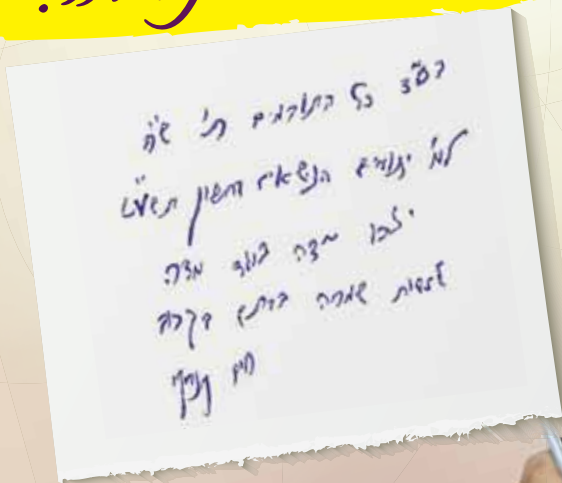 בס"ד כל התורמים ת' ש"ח
למ' יתומים הנשאים חשון תשע"ט
יזכו מדה כנגד מדה
לעשות שמחה בביתם בקרוב
חיים